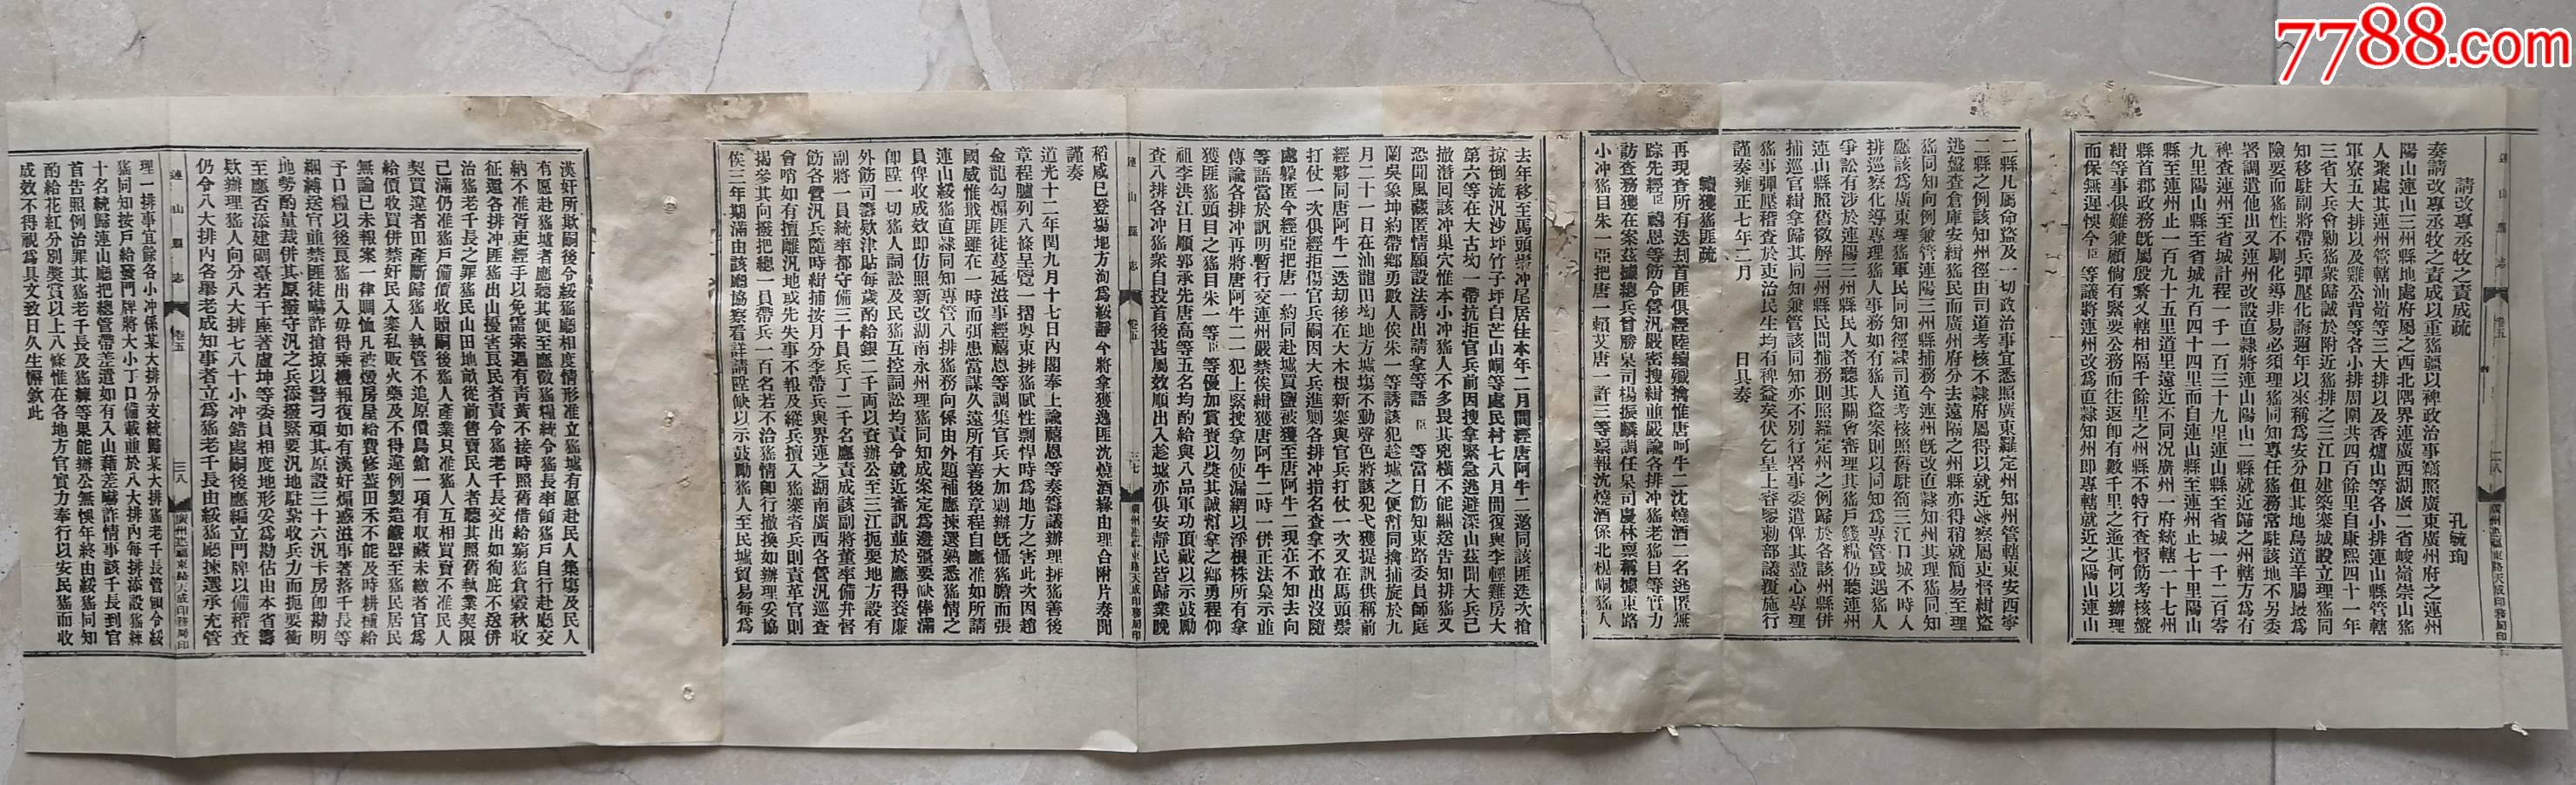 7788.com
請改專丞牧之責成疏　孔毓珣
奏請改專丞牧之責成以重猺疆以裨政治事竊照廣東廣州府之連州
陽山連山三州縣地處府屬之西北隅界連廣西湖廣二省峻嶺崇山猺
人聚處其連州管轄油嶺等三大排以及香爐山等各小排連山縣管轄
軍寮五大排以及雞公背等各小排周圍共四百餘里自康熙四十一年
三省大兵會勦猺眾歸誠於附近猺排之三江口建築寨城設立理猺同
知移駐副將帶兵彈壓化誨邇年以來稱為安分但其地鳥道羊腸最為
險要而猺性不馴化導非易必須理猺同知專任猺務常駐該地不另委
署調遣他出又連州改設直隸將連山陽山二縣就近歸之州轄方為有
裨查連州至省城計程一千一百三十九里連山縣至省城一千二百零
九里陽山縣至省城九百四十四里而自連山縣至連州止七十里陽山
縣至連州止一百九十五里道里遠近不同況廣州一府統轄一十七州
縣首郡政務既屬殷繁又轄相隔千餘里之州縣不特行查督飭考核盤
緝等事俱難兼顧倘有緊要公務而往返即有數千里之遙其何以辦理
而保無遲悞今臣等議將連州改為直隸知州即專轄就近之陽山連山
連山縣志
卷五
二八
廣州惠福東路天成印務局印
二縣凡屬命盜及一切政治事宜悉照廣東羅定州知州管轄東安西寧
二縣之例該知州徑由司道考核不隸府屬得以就近察屬吏督緝盜
逃盤查倉庫安緝猺民而廣州府分去遠隔之州縣亦得稍就簡易至理
猺同知向例兼管連陽三州縣捕務今連州既改直隸知州其理猺同知
應該為廣東理猺軍民同知徑隸司道考核照舊駐箚三江口城不時入
排巡察化導專理猺人事務如有猺人盜案則以同知為專管或遇猺人
爭訟有涉於連陽三州縣民人者聽其關會審理其猺戶錢糧仍聽連州
連山縣照舊徵解三州縣民間捕務則照羅定州之例歸於各該州縣併
捕巡官緝拿歸其同知兼管該同知亦不別行署事委遣俾其盡心專理
猺事彈壓稽查於吏治民生均有裨益矣伏乞皇上睿鑒勅部議覆施行
謹奏雍正七年二月　日具奏
續獲猺匪疏
再現查所有送刦首匪俱經陸續殲擒惟唐呵牛二沈燒酒二名逃匿無
踪先經臣禧恩等飭令營汎嚴密搜緝並嚴諭各排冲猺老猺目等實力
訪查務獲在案茲據總兵曾勝臬司楊振麟調任臬司慶林稟稱據東路
小冲猺目朱一亞把唐一賴艾唐一許三等稟報沈燒酒係北梘峒猺人
去年移至馬頭崇冲尾居住本年二月間經唐阿牛二邀同該匪迭次搶
掠倒流汎沙坪竹子坪白芒山峒等處民村七八月間復與李輕雞房大
第六等在大古坳一帶抗拒官兵前因搜拿緊急逃避深山茲聞大兵已
撤潛回該冲巢穴惟本小冲猺人不多畏其兇橫不能綑送告知排猺又
恐聞風藏匿情願設法誘出請拿等語臣等當日飭知東路委員師庭
蘭吳象坤約帶鄉勇數人俟朱一等誘該犯趁墟之便幫同擒捕旋於九
月二十一日在油龍田坳地方墟塲不動聲色將該犯弋獲提訊供稱前
經夥同唐阿牛二迭劫後在大木根新寨與官兵打仗一次又在馬頭寨
打仗一次俱經拒傷官兵嗣因大兵進勦各排冲指名查拿不敢出沒隨
處躲匿今經亞把唐一約同赴墟買鹽被獲至唐阿牛二現在不知去向
等語當於訊明暫行交連州嚴禁俟緝獲唐阿牛二時一併正法梟示並
傳諭各排冲再將唐阿牛二一犯上緊搜拿勿使漏網以淨根株所有拿
獲匪猺頭目之猺目朱一等臣等優加賞賚以獎其誠幫拿之鄉勇程仰
祖李洪江日順郭承先唐高等五名均酌給與八品軍功頂戴以示鼓勵
查八排各冲猺衆自投首後甚屬效順出入趁墟亦俱安靜民皆歸業晚
連山縣志
卷五
三七
廣州惠福東路天成印務局印
稻咸已登場地方洵為綏靜今將拿獲逸匪沈燒酒緣由理合附片奏聞
謹奏
道光十二年閏九月十七日內閣奉上諭禧恩等奏籌議辦理排猺善後
章程臚列八條呈覽一摺粵東排猺賦性剽悍時為地方之害此次因趙
金龍勾煽匪徒蔓延滋事經禧恩等調集官兵大加剿辦既懾猺膽而張
國威惟戢匪雖在一時而弭患當謀久遠所有善後章程自應准如所請
連山綏猺直隸同知專管八排猺務向係由外題補應揀選熟悉猺情之
員俾收成效即仿照新改湖南永州理猺同知成案定為邊疆要缺俸滿
即陞一切猺人詞訟及民猺互控詞訟均責令就近審訊並於應得養廉
外飭司籌欵津貼每歲酌給銀二千両以資辦公至三江扼要地方設有
副將一員統率都守備三十員兵丁二千名應責成該副將董率備弁督
飭各營汎兵隨時緝捕按月分季帶兵與界連之湖南廣西各營汎巡查
會哨如有擅離汎地或先失事不報及縱兵擅入猺寨者兵則責革官則
揭參其向撥把總一員帶兵一百名若不洽猺情即行撤換如辦理妥協
俟三年期滿由該廳協察看詳請陞缺以示鼓勵猺人至民墟貿易每為
漢奸所欺嗣後令綏猺廳相度情形准立猺墟有愿赴民人集塲及民人
有愿赴猺墟者應聽其便至應徵猺糧統令猺長率領猺戶自行赴廳交
納不准胥吏經手以免需索遇有青黃不接時照舊借給窮猺倉穀秋收
征還各排冲匪猺出山擾害良民者責令猺老千長交出如徇庇不送併
治猺老千長之罪猺民山田地畝從前售賣民人者聽其照舊執業契限
已滿仍准猺戶備價收贖嗣後猺人產業只准猺人互相買賣不准民人
契買違者田產斷歸猺人執管不追原價鳥鎗一項有收藏未繳者官為
給價收買併禁奸民入寨私販火藥及不得違例製造鐵器至猺民居民
無論已未報案一律賙恤凡被燬房屋給費修葺田禾不能及時耕種給
予口糧以後良猺出入毋得乘機報復如有漢奸煽惑滋事著落千長等
綑縛送官並禁匪徒嚇詐搶掠以警刁頑其原設三十六汎卡房即勘明
地勢酌量裁併其原撥守汎之兵添撥緊要汎地駐紮收兵力而扼要衝
至應否添建碉臺若干座著盧坤等委員相度地形妥為勘估由本省籌
欵辦理猺人向分八大排七八十小冲錯處嗣後應編立門牌以備稽查
仍令八大排內各舉老成知事者立為猺老千長由綏猺廳揀選承充管
連山縣志
卷五
三八
廣州惠福東路天成印務局印
理一排事宜餘各小冲係某大排分支統歸某大排猺老千長管領令綏
猺同知按戶給發門牌將大小丁口備載並於八大排內每排添設猺練
十名統歸連山廳把總管帶差遣如有入山藉差嚇詐情事該千長到官
首告照例治罪其猺老千長及猺練等果能辦公無悞年終由綏猺同知
酌給花紅分別獎賞以上八條惟在各地方官實力奉行以安民猺而收
成效不得視為具文致日久生懈欽此